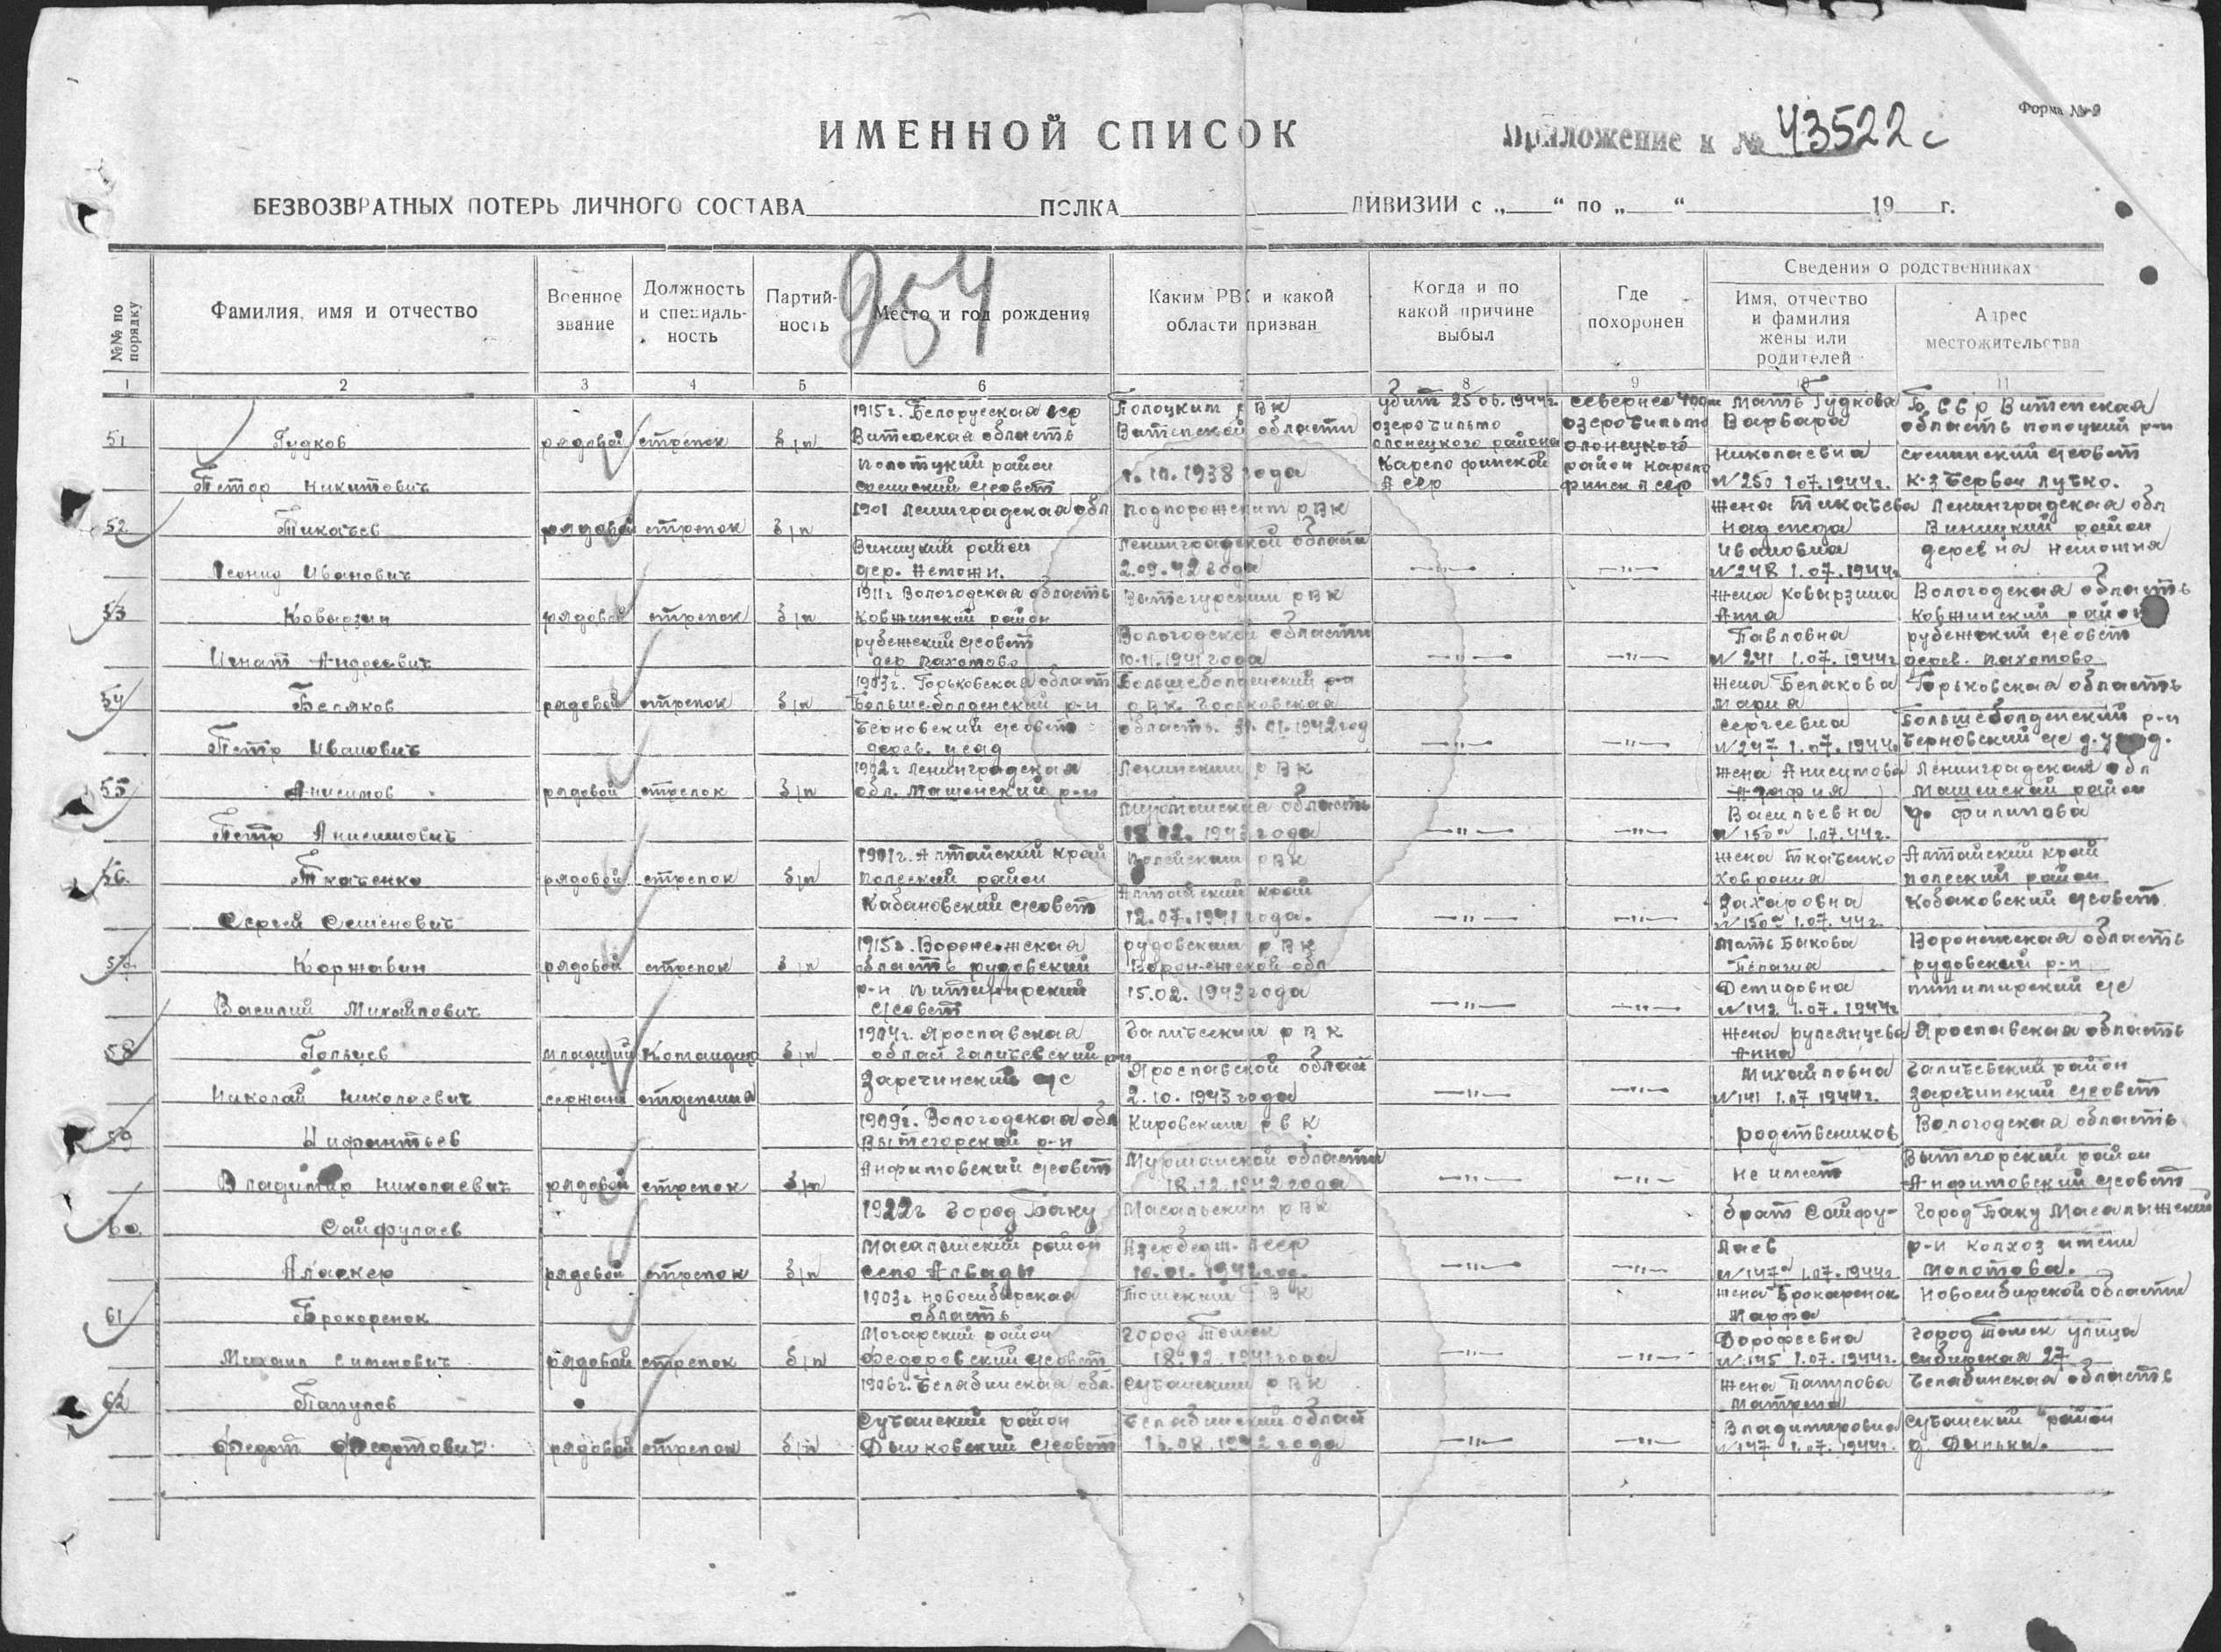 Форма №-9
ИМЕННОЙ СПИСОК
Приложение к № 43522 с
БЕЗВОЗВРАТНЫХ ПОТЕРЬ ЛИЧНОГО СОСТАВА ПОЛКА ДИВИЗИИ с „ “ по „ “ 19 г.
№№ по порядку
Фамилия, имя и отчество
Военное звание
Должность и специальность
Партийность
Место и год рождения
Каким РВК и какой области призван
Когда и по какой причине выбыл
Где похоронен
Сведения о родственниках
Имя, отчество и фамилия жены или родителей
Адрес местожительства
1 2 3 4 5 6 7 8 9 10 11
51 Гудков рядовой стрелок б/п
Петор Никитович
1915 г. Белорусская сср
Витебская область
полотцкий район
Полоцким РВК
Витепской области
10.1938 года
убит 25.06.1944 г.
озеро
олонецкого района
Карело финской
А сср
севернее 400 м
олонецкого
район карело
финск А сср
Мать Гудкова
Варвара
Николаевна
№ 250 1.07.1944 г.
Б.ССР Витепская
область полоцкий р-н
52 Тикачев рядовой стрелок б/п
Леонид Иванович
1901 Ленинградская обл
Винницкий район
дер. Неможи.
подпорожским рвк
Ленинградской области
2.09.42 года
—"— —"—
жена Тикачева
надежда
Ивановна
№ 248 1.07.1944 г
Ленинградская обл
Винницкий район
деревна неможня
53 Ковырзин рядовой стрелок б/п
Игнат Андреевич
1911 г Вологодская область
Ковжинский район
рубежский с/совет
дер Пахотово
Вытегурским рвк
Вологодской области
10.11.1941 года
—"— —"—
жена Ковырзина
Анна
Павловна
№ 241 1.07.1944 г
Вологодская область
Ковжинский район
рубежский с/совет
дерев. пахотово
54 Беляков рядовой стрелок б/п
Петр Иванович
1903 г. Горьковская област
Больше-болденский р-н
Черновский с/совет
дерев. усад
Большеболденский ра
рвк Горьковская
область. 01.1942 год
—"— —"—
жена Белякова
Мария
сергеевна
№ 247 1.07.1944 г
Горьковская область
Большеболденский р-н
Черновский с/с
55 Анисимов рядовой стрелок б/п
Петр Анисимович
1902 г Ленинградская
обл. Мошенский р-н
Ленинским рвк
Мурманская область
18.12.1943 года
—"— —"—
жена Анисимова
Васильевна
№ 150 а 1.07.44 г.
Ленинградская обл
Мошенский район
д. филипова
56. Ткаченко рядовой стрелок б/п
Сергей Семенович
1901 г. Алтайский край
полеский район
Кабановский с/совет
рвк
Алтайский край
12.07.1941 года.
—"— —"—
жена Ткаченко
Ховрония
Захаровна
№ 150 а 1.07.44 г.
Алтайский край
полеский район
кобаковский с/совет
57 Коржавин рядовой стрелок б/п
Василий Михайлович
1915 г. Воронежская
область рудовский
р-н
с/совет
рудовским рвк
Воронежской обл
15.02.1943 года
—"— —"—
мать Быкова
Пелагия
Демидовна
№ 142 1.07.1944 г
Воронежская область
рудовский р-н
с/с
58 Гольцев младший Командир б/п
Николай Николаевич сержант отделения
1904 г. Ярославская
област галичевский р-н
Заречинский с/с
Галичевским рвк
Ярославской област
2.10.1943 года
—"— —"—
жена румянцева
Анна
Михайловна
№ 141 1.07 1944 г.
Ярославская область
Галичевский район
заречинский с/совет
59 Нифантьев
Владимир Николаевич рядовой стрелок б/п
1909 г. Вологодская обл
Вытегорский р-н
Анфимовский с/совет
Кировским рвк
Мурманской области
18.12.1942 года
—"— —"—
родственников
не имеет
Вологодская область
Вытегорский район
Анфимовский с/совет
60. Сайфулаев
Аласкер рядовой стрелок б/п
1922 г город Баку
Масалынский район
село Алвады
Масальским рвк
Азербедж. ссср
10.01.1942 год.
—"— —"—
брат Сайфу-
лаев
№ 147 а 1.07.1944 г
город Баку
р-н колхоз имени
молотова.
61 Брокоренок
Михаил рядовой стрелок б/п
1903 г новосибирская
область
Могарский район
Федоровский с/совет
Томский РВК
город Томск
18.12.1941 года
—"— —"—
жена Брокаренок
Марфа
Дорофеевна
№ 145 1.07.1944 г.
Новосибирской области
город Томск улица
сибирская 27
62 Папулов
Федот Федотович рядовой стрелок б/п
1906 г. Челабинская обл.
Сучанский район
с/совет
сучанским рвк
Челабинский област
08.1942 года
—"— —"—
жена Папулова
Матрена
Владимировна
№ 147 1.07.1944 г.
Челабинская область
сучанский район
954